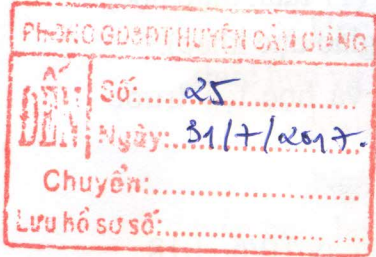 PHÒNG GD&ĐT HUYỆN CẨM GIÀNG
ĐẾN
Số: 25
Ngày: 31/7/2017.
Chuyển:
Lưu hồ sơ số: